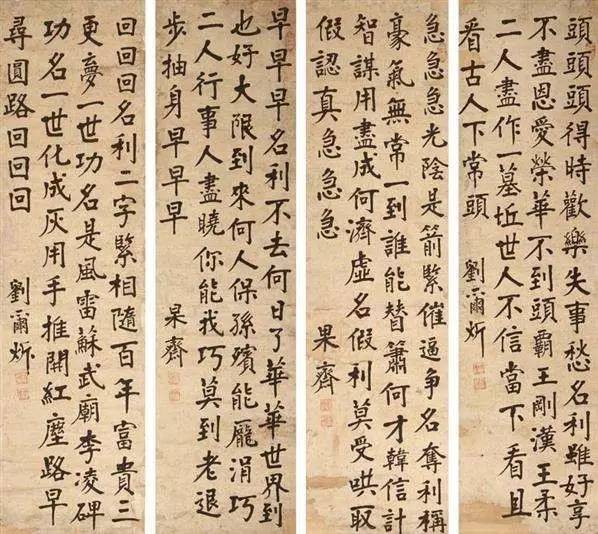 頭頭頭得時歡樂失事愁名利雖好享
不盡恩愛榮華不到頭霸王剛漢王柔
二人盡作一墓坵世人不信當下看且
看古人下常頭
劉爾炘
急急急光陰是箭緊催逼爭名奪利稱
豪氣無常一到誰能替蕭何才韓信計
智謀用盡成何濟虛名假利莫受哄取
假認真急急急
果齋
早早早名利不去何日了華華世界到
也好大限到來何人保孫殯能龐涓巧
二人行事人盡曉你能我巧莫到老退
步抽身早早早
果齋
回回回名利二字緊相隨百年富貴三
更夢一世功名是風雷蘇武廟李凌碑
功名一世化成灰用手推開紅塵路早
尋圓路回回回
劉爾炘